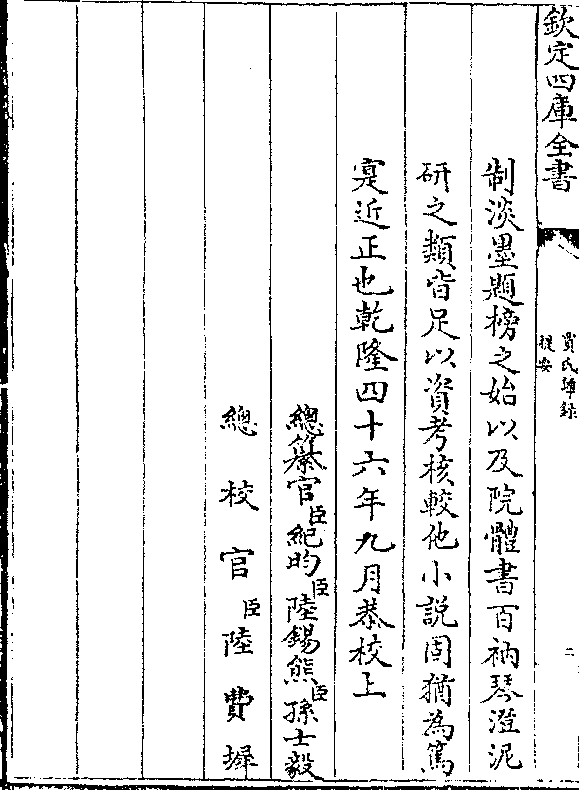 欽定四庫全書
賈氏譚録
提要
二
制淡墨題榜之始以及院體書百衲琴澄泥
研之類皆足以資考核較他小説固猶為篤
實近正也乾隆四十六年九月恭校上
總纂官臣紀昀臣陸錫熊臣孫士毅
總校官臣陸費墀